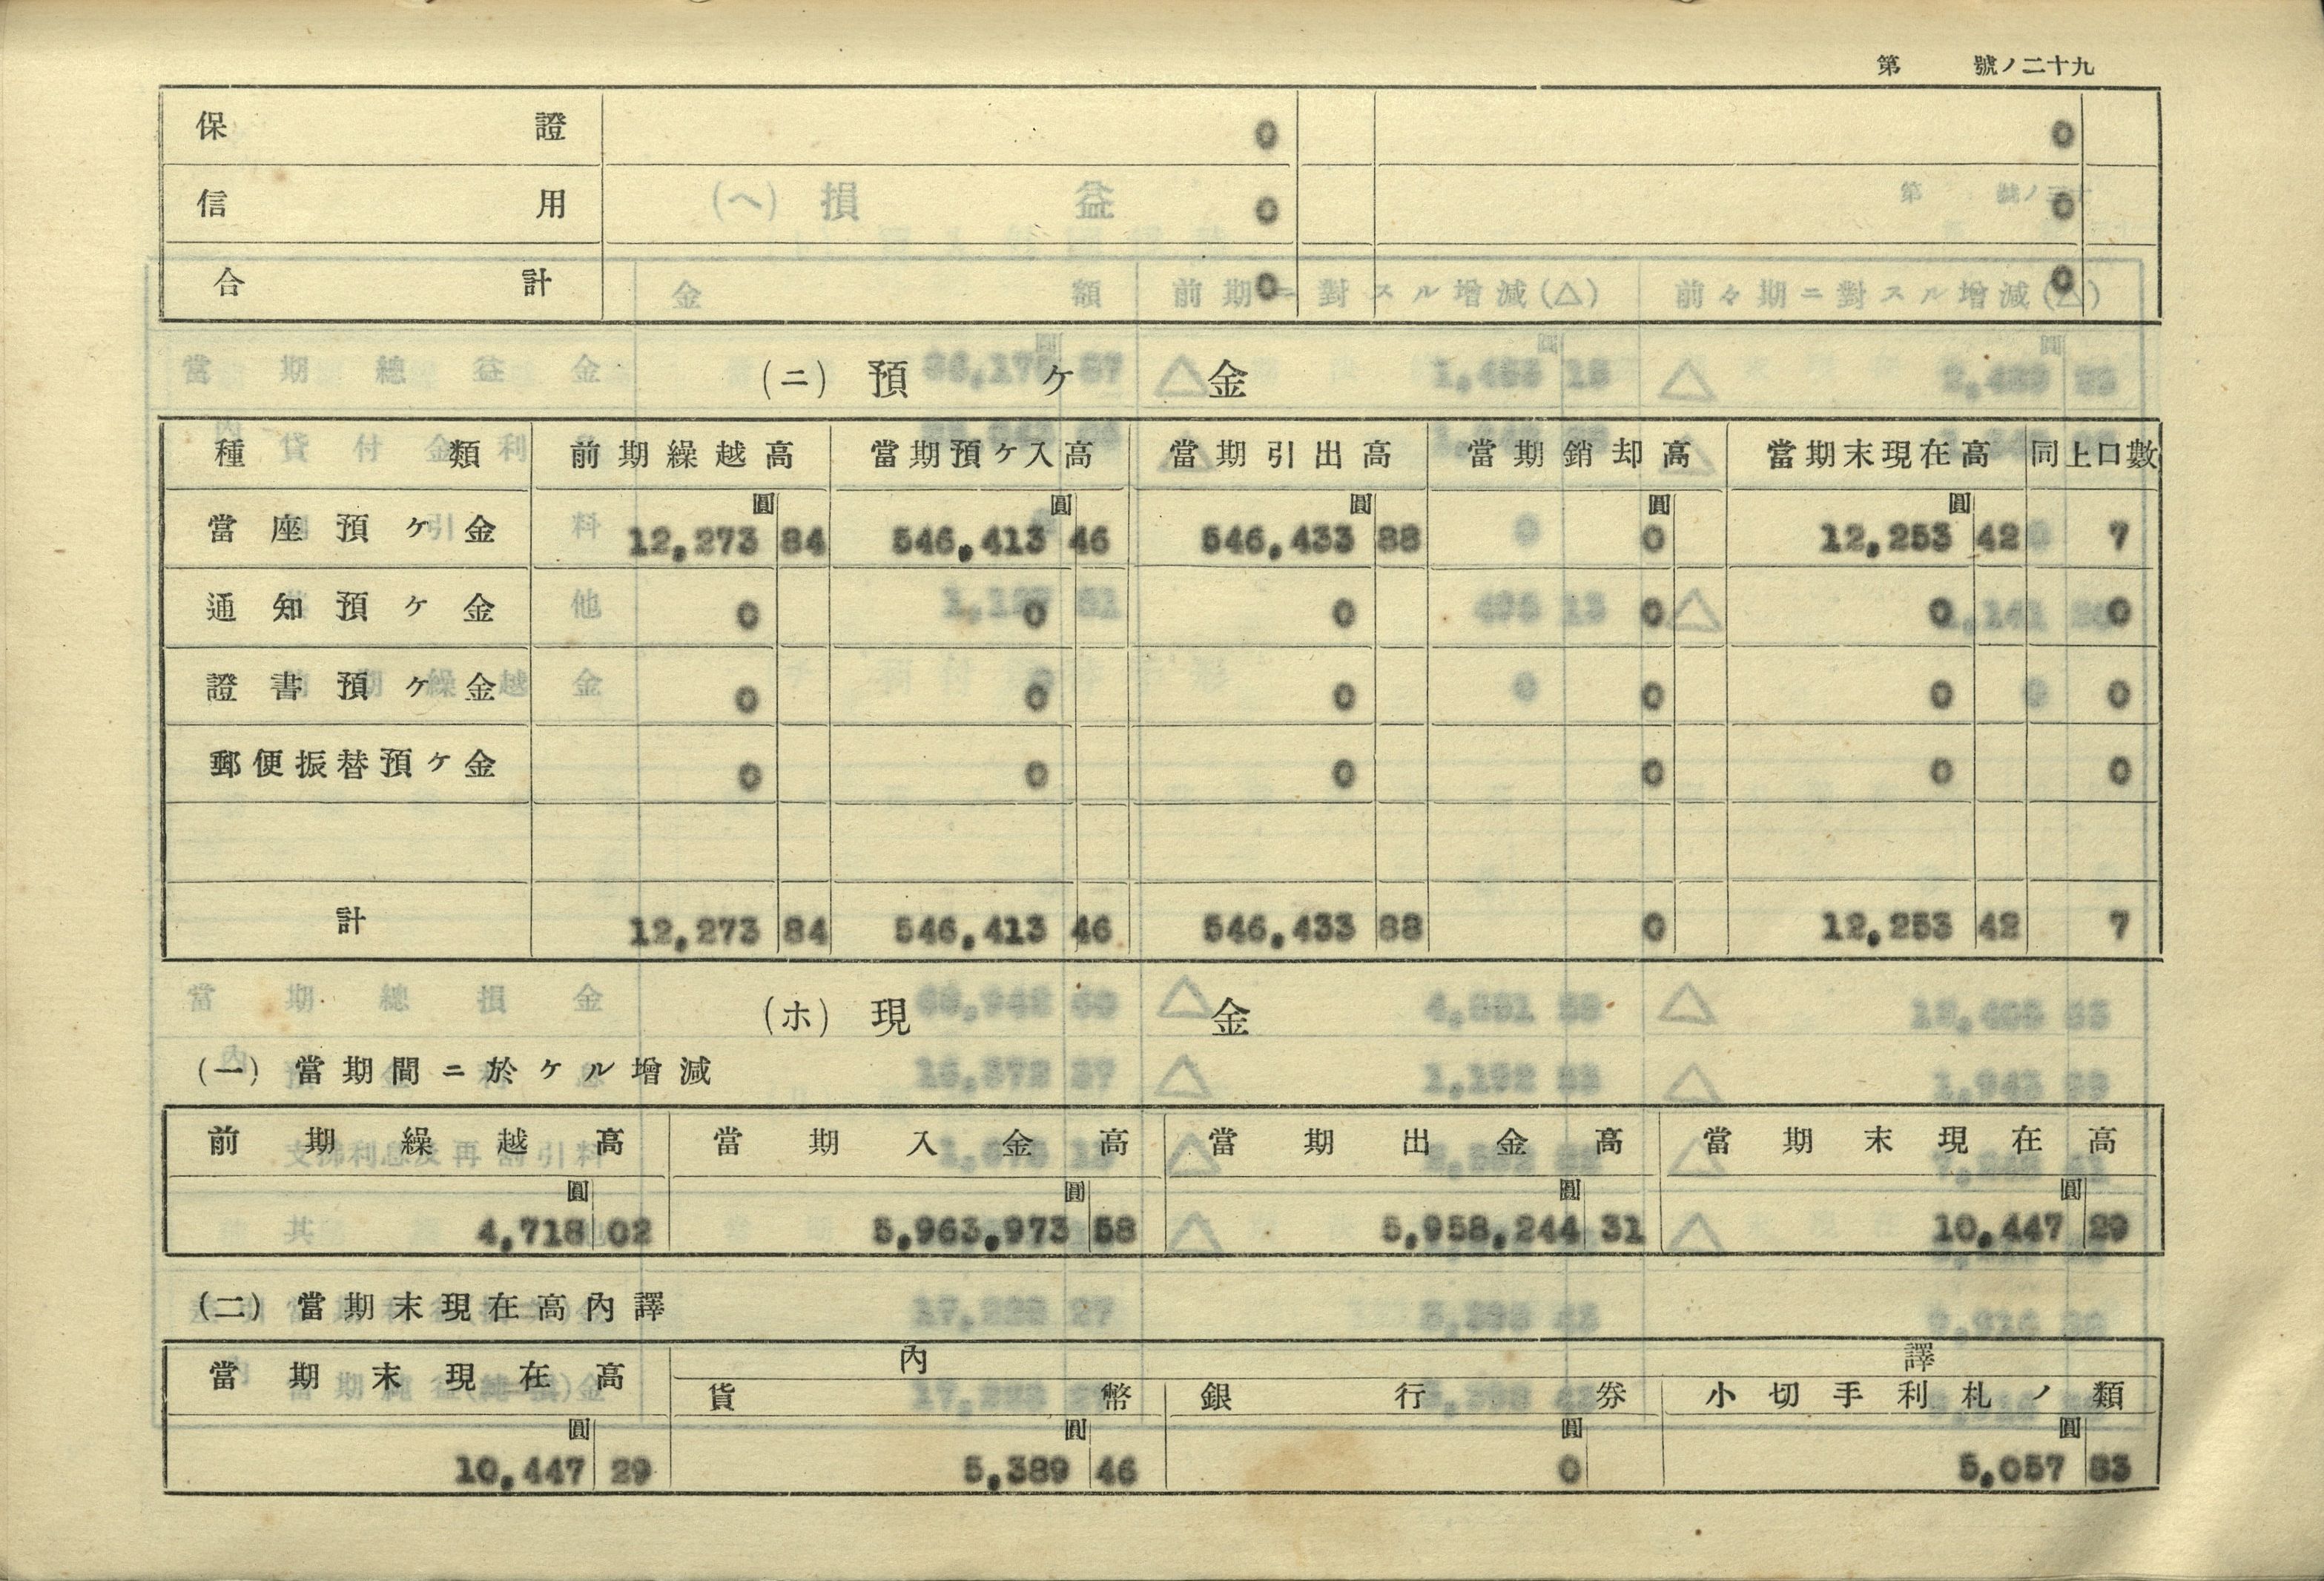 第 號ノ二十九
保證 0 0
信用 0 0
合計 0 0
(ニ) 預ケ金
種類 前期繰越高 當期預ケ入高 當期引出高 當期銷却高 當期末現在高 同上口數
圓 圓 圓 圓 圓
當座預ケ金 12,273 84 546,413 46 546,433 88 0 12,253 42 7
通知預ケ金 0 0 0 0 0 0
證書預ケ金 0 0 0 0 0 0
郵便振替預ケ金 0 0 0 0 0 0
計 12,273 84 546,413 46 546,433 88 0 12,253 42 7
(ホ) 現金
(一) 當期間ニ於ケル增減
前期繰越高 當期入金高 當期出金高 當期末現在高
圓 圓 圓 圓
4,718 02 5,963,973 58 5,958,244 31 10,447 29
(二) 當期末現在高內譯
當期末現在高 內譯
貨幣 銀行券 小切手利札ノ類
圓 圓 圓 圓
10,447 29 5,389 46 0 5,057 83